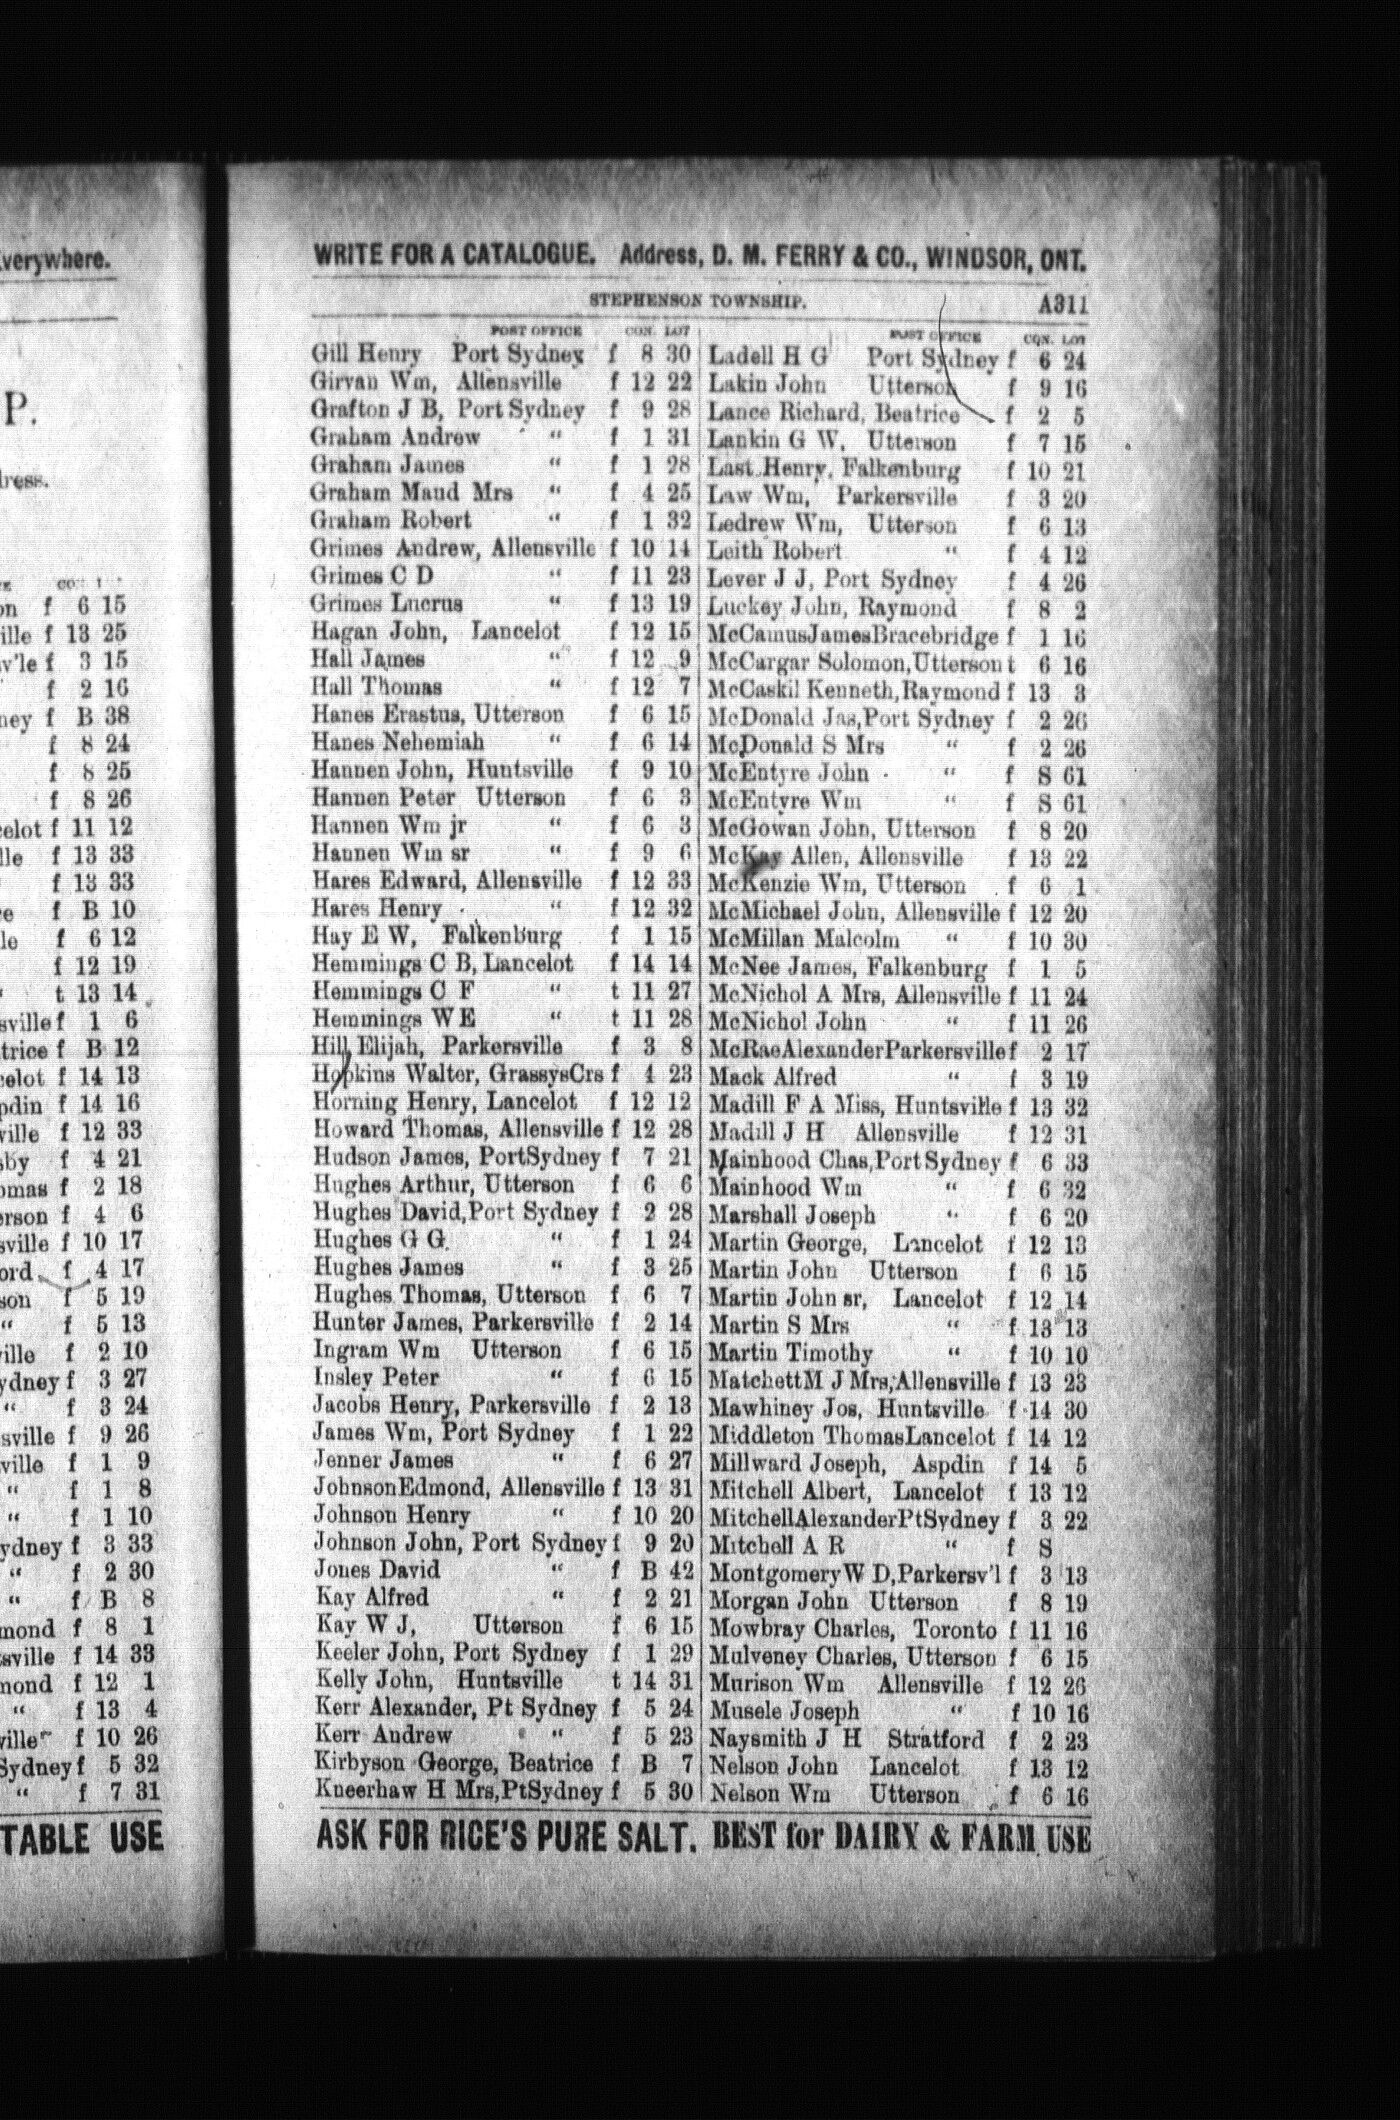 Everywhere.
P.
dress.
CO
on f 6 15
ille f 13 25
v'le f 3 15
f 2 16
ney f B 38
f 8 24
f 8 25
f 8 26
celot f 11 12
lle f 13 33
f 13 33
e f B 10
le f 6 12
f 12 19
“ t 13 14
sville f 1 6
trice f B 12
celot f 14 13
pdin f 14 16
ville f 12 33
sby f 4 21
omas f 2 18
erson f 4 6
sville f 10 17
ord f 4 17
son f 5 19
“ f 5 13
ville f 2 10
ydney f 3 27
“ f 3 24
sville f 9 26
ville f 1 9
“ f 1 8
“ f 1 10
ydney f 3 33
“ f 2 30
“ f B 8
mond f 8 1
tsville f 14 33
mond f 12 1
“ f 13 4
ville f 10 26
Sydney f 5 32
“ f 7 31
TABLE USE
WRITE FOR A CATALOGUE. Address, D. M. FERRY & CO., WINDSOR, ONT.
STEPHENSON TOWNSHIP. A311
POST OFFICE CON. LOT
Gill Henry Port Sydney f 8 30
Girvan Wm, Allensville f 12 22
Grafton J B, Port Sydney f 9 28
Graham Andrew “ f 1 31
Graham James “ f 1 28
Graham Maud Mrs “ f 4 25
Graham Robert “ f 1 32
Grimes Andrew, Allensville f 10 14
Grimes C D “ f 11 23
Grimes Lucrus “ f 13 19
Hagan John, Lancelot f 12 15
Hall James “ f 12 9
Hall Thomas “ f 12 7
Hanes Erastus, Utterson f 6 15
Hanes Nehemiah “ f 6 14
Hannen John, Huntsville f 9 10
Hannen Peter Utterson f 6 3
Hannen Wm jr “ f 6 3
Hannen Wm sr “ f 9 6
Hares Edward, Allensville f 12 33
Hares Henry “ f 12 32
Hay E W, Falkenburg f 1 15
Hemmings C B, Lancelot f 14 14
Hemmings C F “ t 11 27
Hemmings W E “ t 11 28
Hill Elijah, Parkersville f 3 8
Hopkins Walter, GrassysCrs f 4 23
Horning Henry, Lancelot f 12 12
Howard Thomas, Allensville f 12 28
Hudson James, PortSydney f 7 21
Hughes Arthur, Utterson f 6 6
Hughes David,Port Sydney f 2 28
Hughes G G. “ f 1 24
Hughes James “ f 3 25
Hughes Thomas, Utterson f 6 7
Hunter James, Parkersville f 2 14
Ingram Wm Utterson f 6 15
Insley Peter “ f 6 15
Jacobs Henry, Parkersville f 2 13
James Wm, Port Sydney f 1 22
Jenner James “ f 6 27
JohnsonEdmond, Allensville f 13 31
Johnson Henry “ f 10 20
Johnson John, Port Sydney f 9 20
Jones David “ f B 42
Kay Alfred “ f 2 21
Kay W J, Utterson f 6 15
Keeler John, Port Sydney f 1 29
Kelly John, Huntsville t 14 31
Kerr Alexander, Pt Sydney f 5 24
Kerr Andrew “ f 5 23
Kirbyson George, Beatrice f B 7
Kneerhaw H Mrs,PtSydney f 5 30
POST OFFICE CON. LOT
Ladell H G Port Sydney f 6 24
Lakin John Utterson f 9 16
Lance Richard, Beatrice f 2 5
Lankin G W, Utterson f 7 15
Last Henry, Falkenburg f 10 21
Law Wm, Parkersville f 3 20
Ledrew Wm, Utterson f 6 13
Leith Robert “ f 4 12
Lever J J, Port Sydney f 4 26
Luckey John, Raymond f 8 2
McCamusJamesBracebridge f 1 16
McCargar Solomon,Utterson t 6 16
McCaskil Kenneth,Raymond f 13 3
McDonald Jas,Port Sydney f 2 26
McDonald S Mrs “ f 2 26
McEntyre John “ f S 61
McEntyre Wm “ f S 61
McGowan John, Utterson f 8 20
McKay Allen, Allensville f 13 22
McKenzie Wm, Utterson f 6 1
McMichael John, Allensville f 12 20
McMillan Malcolm “ f 10 30
McNee James, Falkenburg f 1 5
McNichol A Mrs, Allensville f 11 24
McNichol John “ f 11 26
McRaeAlexanderParkersville f 2 17
Mack Alfred “ f 3 19
Madill F A Miss, Huntsville f 13 32
Madill J H Allensville f 12 31
Mainhood Chas,Port Sydney f 6 33
Mainhood Wm “ f 6 32
Marshall Joseph “ f 6 20
Martin George, Lancelot f 12 13
Martin John Utterson f 6 15
Martin John sr, Lancelot f 12 14
Martin S Mrs “ f 13 13
Martin Timothy “ f 10 10
MatchettM J Mrs, Allensville f 13 23
Mawhiney Jos, Huntsville f 14 30
Middleton ThomasLancelot f 14 12
Millward Joseph, Aspdin f 14 5
Mitchell Albert, Lancelot f 13 12
MitchellAlexanderPtSydney f 3 22
Mitchell A R “ f S
MontgomeryW D,Parkersv'l f 3 13
Morgan John Utterson f 8 19
Mowbray Charles, Toronto f 11 16
Mulveney Charles, Utterson f 6 15
Murison Wm Allensville f 12 26
Musele Joseph “ f 10 16
Naysmith J H Stratford f 2 23
Nelson John Lancelot f 13 12
Nelson Wm Utterson f 6 16
ASK FOR RICE'S PURE SALT. BEST for DAIRY & FARM USE